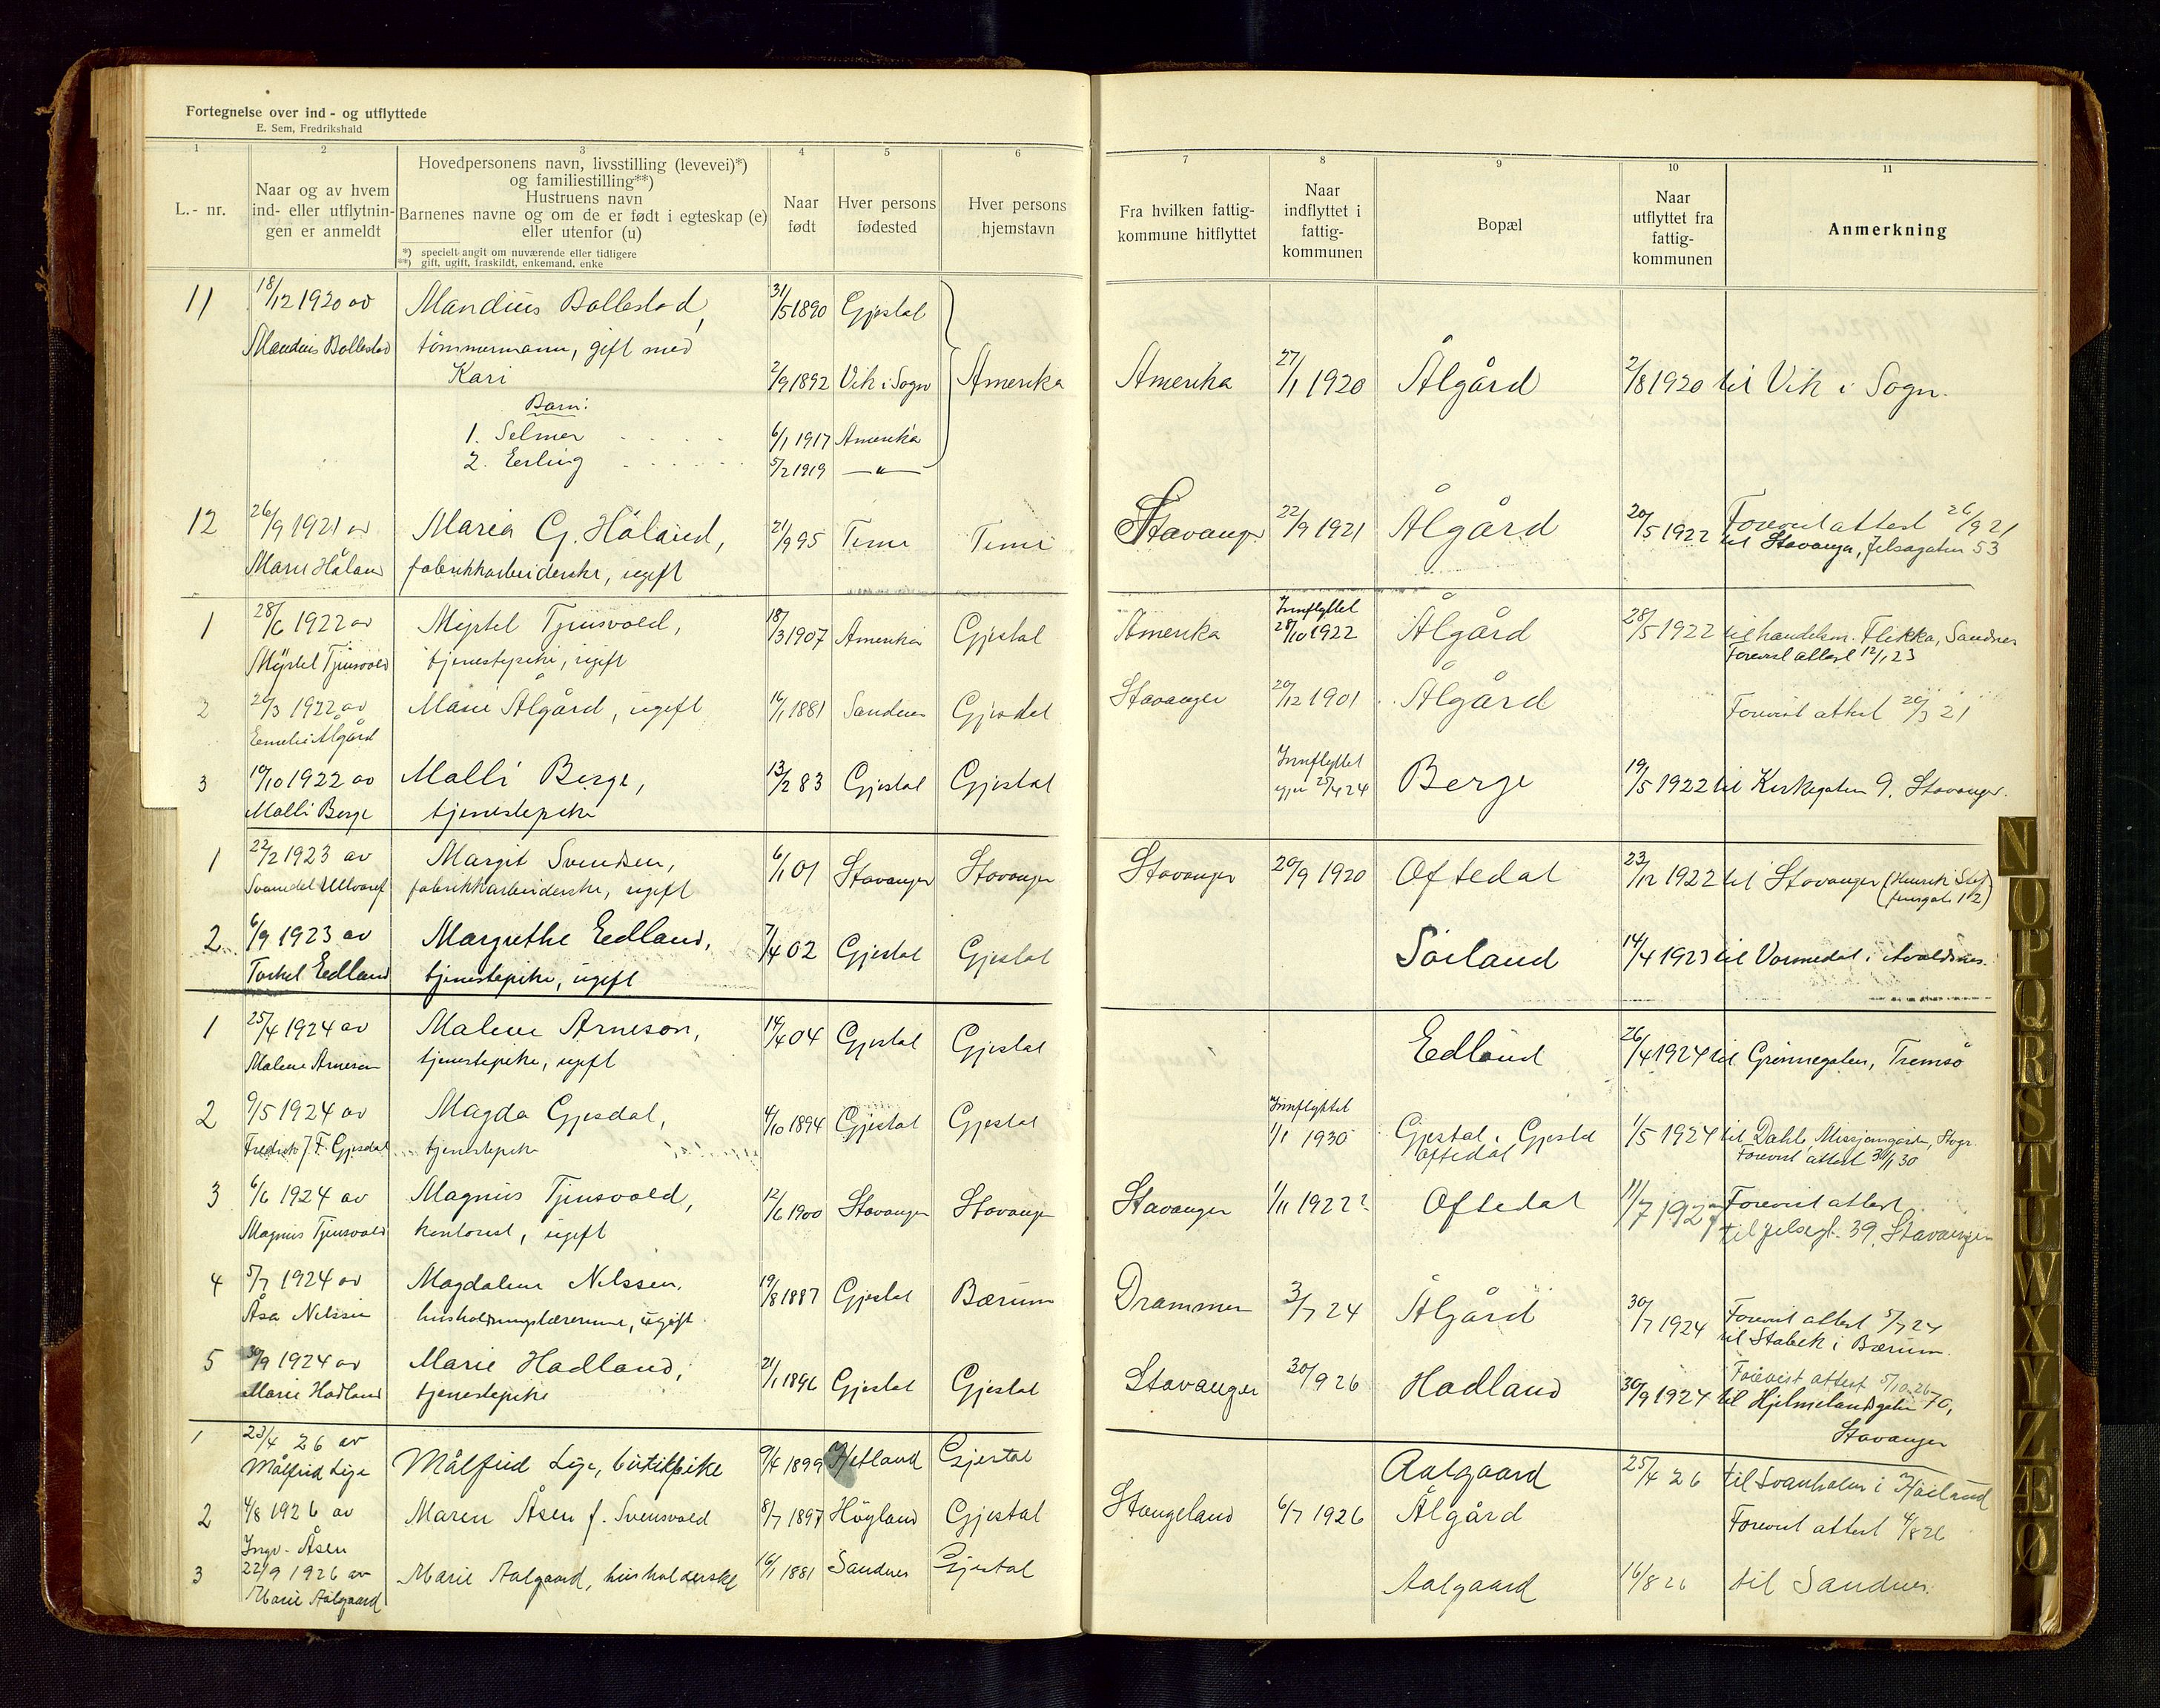 Fortegnelse over ind- og utflyttede
E. Sem, Fredrikshald
1 2 3 4 5 6 7 8 9 10 11
L.- nr.
Naar og av hvem ind- eller utflytnin-gen er anmeldt
Hovedpersonens navn, livsstilling (levevei)*)
og familiestilling**)
Hustruens navn
Barnenes navne og om de er født i egteskap (e)
eller utenfor (u)
*) specielt angit om nuværende eller tidligere
**) gift, ugift, fraskildt, enkemand, enke
Naar født
Hver persons fødested
Hver persons hjemstavn
Fra hvilken fattig-kommune hitflyttet
Naar indflyttet i fattig-kommunen
Bopæl
Naar utflyttet fra fattig-kommunen
Anmerkning
11 18/12 1920 av Mandius Bollestad, 31/5 1890 Gjestal
Mandius Bollestad tömmermann, gift med
Kari 2/9 1892 Vik i Sogn Amerika Amerika 27/1 1920 Ålgård 2/8 1920 til Vik i Sogn.
Barn:
1. Selmer 6/1 1917 Amerika
2. Erling 5/2 1919 — " —
12 26/9 1921 av Maria G. Håland, 21/9 95 Time Time Stavanger 22/9 1921 Ålgård 20/5 1922 Forevist attest 26/9 21
Marie Håland fabrikkarbeiderske, ugift til Stavanger, Jelsagaten 53
1 28/6 1922 av Myrtel Tjensvold, 18/3 1907 Amerika Gjestal Amerika Innflyttet 28/10 1922 Ålgård 28/5 1922 til handelsm. Flikka, Sandnes
Myrtel Tjensvold tjenestepike, ugift Forevist attest 12/1 23
2 20/3 1922 av Marie Ålgård, ugift 16/1 1881 Sandnes Gjesdal Stavanger 20/12 1901 Ålgård Forevist attest 20/3 21
Ålgård
3 10/10 1922 av Malli Berge, 13/2 83 Gjestal Gjestal Innflyttet igjen 25/4 24 Berge 19/5 1922 til Kirkegaten 9, Stavanger.
Malli Berge tjenestepike
1 22/2 1923 av Margit Svendsen, 6/1 01 Stavanger Stavanger Stavanger 20/9 1920 Oftedal 23/12 1922 til Stavanger (Henrik
fabrikkarbeiderske, ugift 12)
2 6/9 1923 av Margrethe Edland, 7/4 02 Gjestal Gjestal Söiland 14/4 1923 til Vormedal i Avaldsnes.
Torkel Edland tjenestepike, ugift
1 25/4 1924 av Malene Arneson, 14/4 04 Gjestal Gjestal Edland 26/4 1924 til Grönnegaten, Tromsö
Malene Arneson tjenestepike, ugift
2 9/5 1924 av Magda Gjesdal, 4/10 1894 Gjestal Gjestal Innflyttet 1/1 1930 Gjestal i Gjestal 1/5 1924 til Dahle, Missjonsgården, Stvgr.
Fredrik J. F. Gjesdal tjenestepike Oftedal Forevist attest 30/1 30
3 6/6 1924 av Magnus Tjensvold, 12/6 1900 Stavanger Stavanger Stavanger 1/11 1922? Oftedal 11/7 192 Forevist attest
Magnus Tjensvold kontorist, ugift til Jelsagt. 39, Stavanger
4 5/7 1924 av Magdalene Nilssen, 19/8 1887 Gjestal Bærum Drammen 3/7 24 Ålgård 30/7 1924 Forevist attest 5/7 24
Åsa Nilssen husholdningslærerinne, ugift til Stabek i Bærum.
5 30/9 1924 av Marie Hadland, 21/1 1896 Gjestal Gjestal Stavanger 30/9 26 Hadland 30/9 1924 Forevist attest 5/10 26
Marie Hadland tjenestepike til Hjelmelandsgaten 70,
Stavanger
1 23/4 26 av Målfrid Lye, butikpike 9/4 1899 Hetland Gjestal Aalgaard 25/4 26 til Svanholm i Håland
Målfrid Lye
2 4/8 1926 av Maren Åsen f. Svensvold 8/7 1897 Höyland Gjestal Stangeland 6/7 1926 Ålgård Forevist attest 4/8 26
Ingv. Åsen
3 22/9 1926 av Marie Aalgaard, husholderske 16/1 1881 Sandnes Gjestal Aalgaard 16/8 26 til Sandnes.
Marie Aalgaard
N
O
P
Q
R
S
T
U
W
X
Y
Z
Æ
Ø